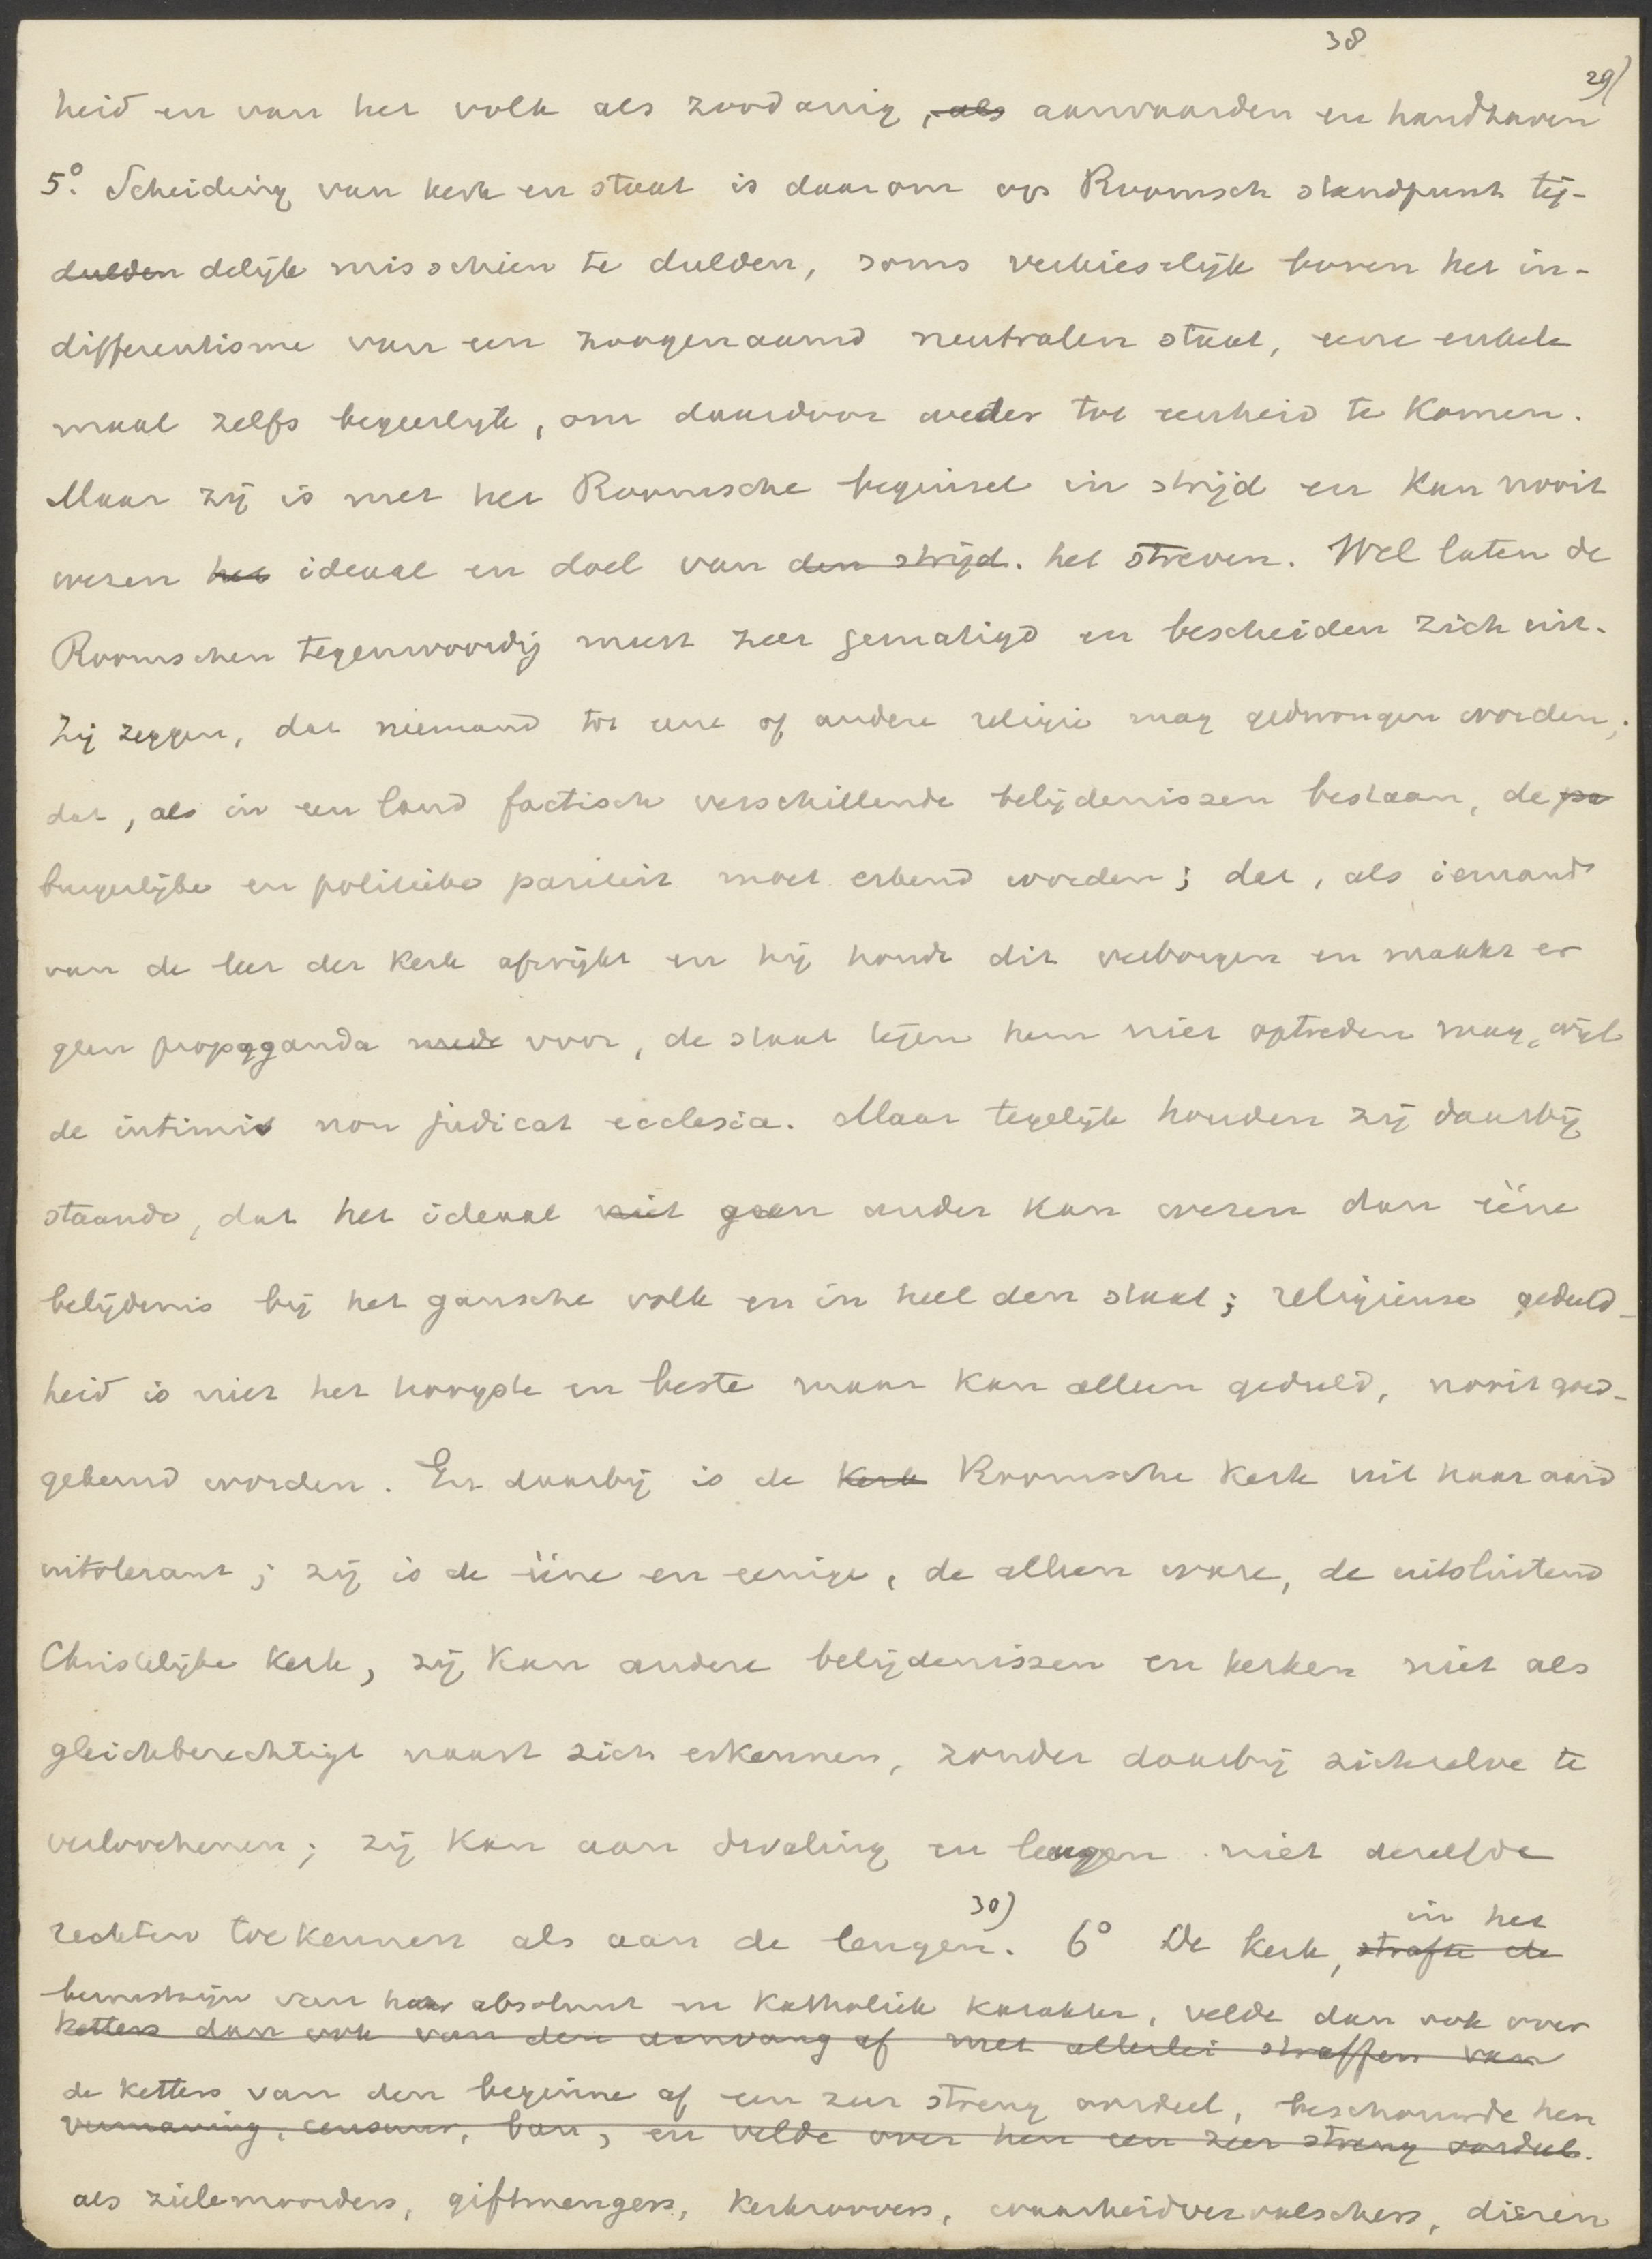 38
29)
heid en van het volk als zoodanig, ~~als~~ aanvaarden en handhaven
5º. Scheiding van kerk en staat is daarom op Roomsch standpunt tij-
~~dulden~~ delijk misschien te dulden, soms verkieslijk boven het in-
differentisme van een zoogenaamd neutralen staat, eene enkele
maal zelfs begeerlijk, om daardoor weder tot eenheid te komen.
Maar zij is met het Roomsche beginsel in strijd en kan nooit
wezen ~~het~~ ideaal en doel van ~~den strijd.~~ het streven. Wel laten de
Roomschen tegenwoordig meest zeer gematigd en bescheiden zich uit.
Zij zeggen, dat niemand tot eene of andere religie mag gedwongen worden;
dat, als in een land factisch verschillende belijdenissen bestaan, de ~~pa~~
burgerlijke en politieke pariteit moet erkend worden; dat, als iemand
van de leer der kerk afwijkt en hij houdt dit verborgen en maakt er
geen propaganda ~~mede~~ voor, de staat tegen hem niet optreden mag, wijl
de intimis non judicat ecclesia. Maar tegelijk houden zij daarbij
staande, dat het ideaal ~~niet~~ geen ander kan wezen dan ééne
belijdenis bij het gansche volk en in heel den staat; religieuse geduld-
heid is niet het hoogste en beste maar kan alleen geduld, nooit goed-
gekeurd worden. En daarbij is de ~~Kerk~~ Roomsche Kerk uit haar aard
intolerant; zij is de ééne en eenige, de alleen ware, de uitsluitend
Christelijke Kerk, zij kan andere belijdenissen en kerken niet als
gleichberechtigt naast zich erkennen, zonder daarbij zichzelve te
verloochenen; zij kan aan dwaling en leugen niet dezelfde
rechten toekennen als aan de leugen. 30) 6º De kerk, ~~strafte de~~ in het
bewustzijn van haar absoluut en katholiek karakter, velde dan ook over
~~ketters dan ook van den aanvang af met allerlei straffen van~~
de ketters van den beginne af een zeer streng oordeel, beschouwde hen
~~vermaning, censuur, ban, en velde over hen een zeer streng oordeel.~~
als zielemoorders, giftmengers, kerkroovers, waarheidvervalschers, dieren